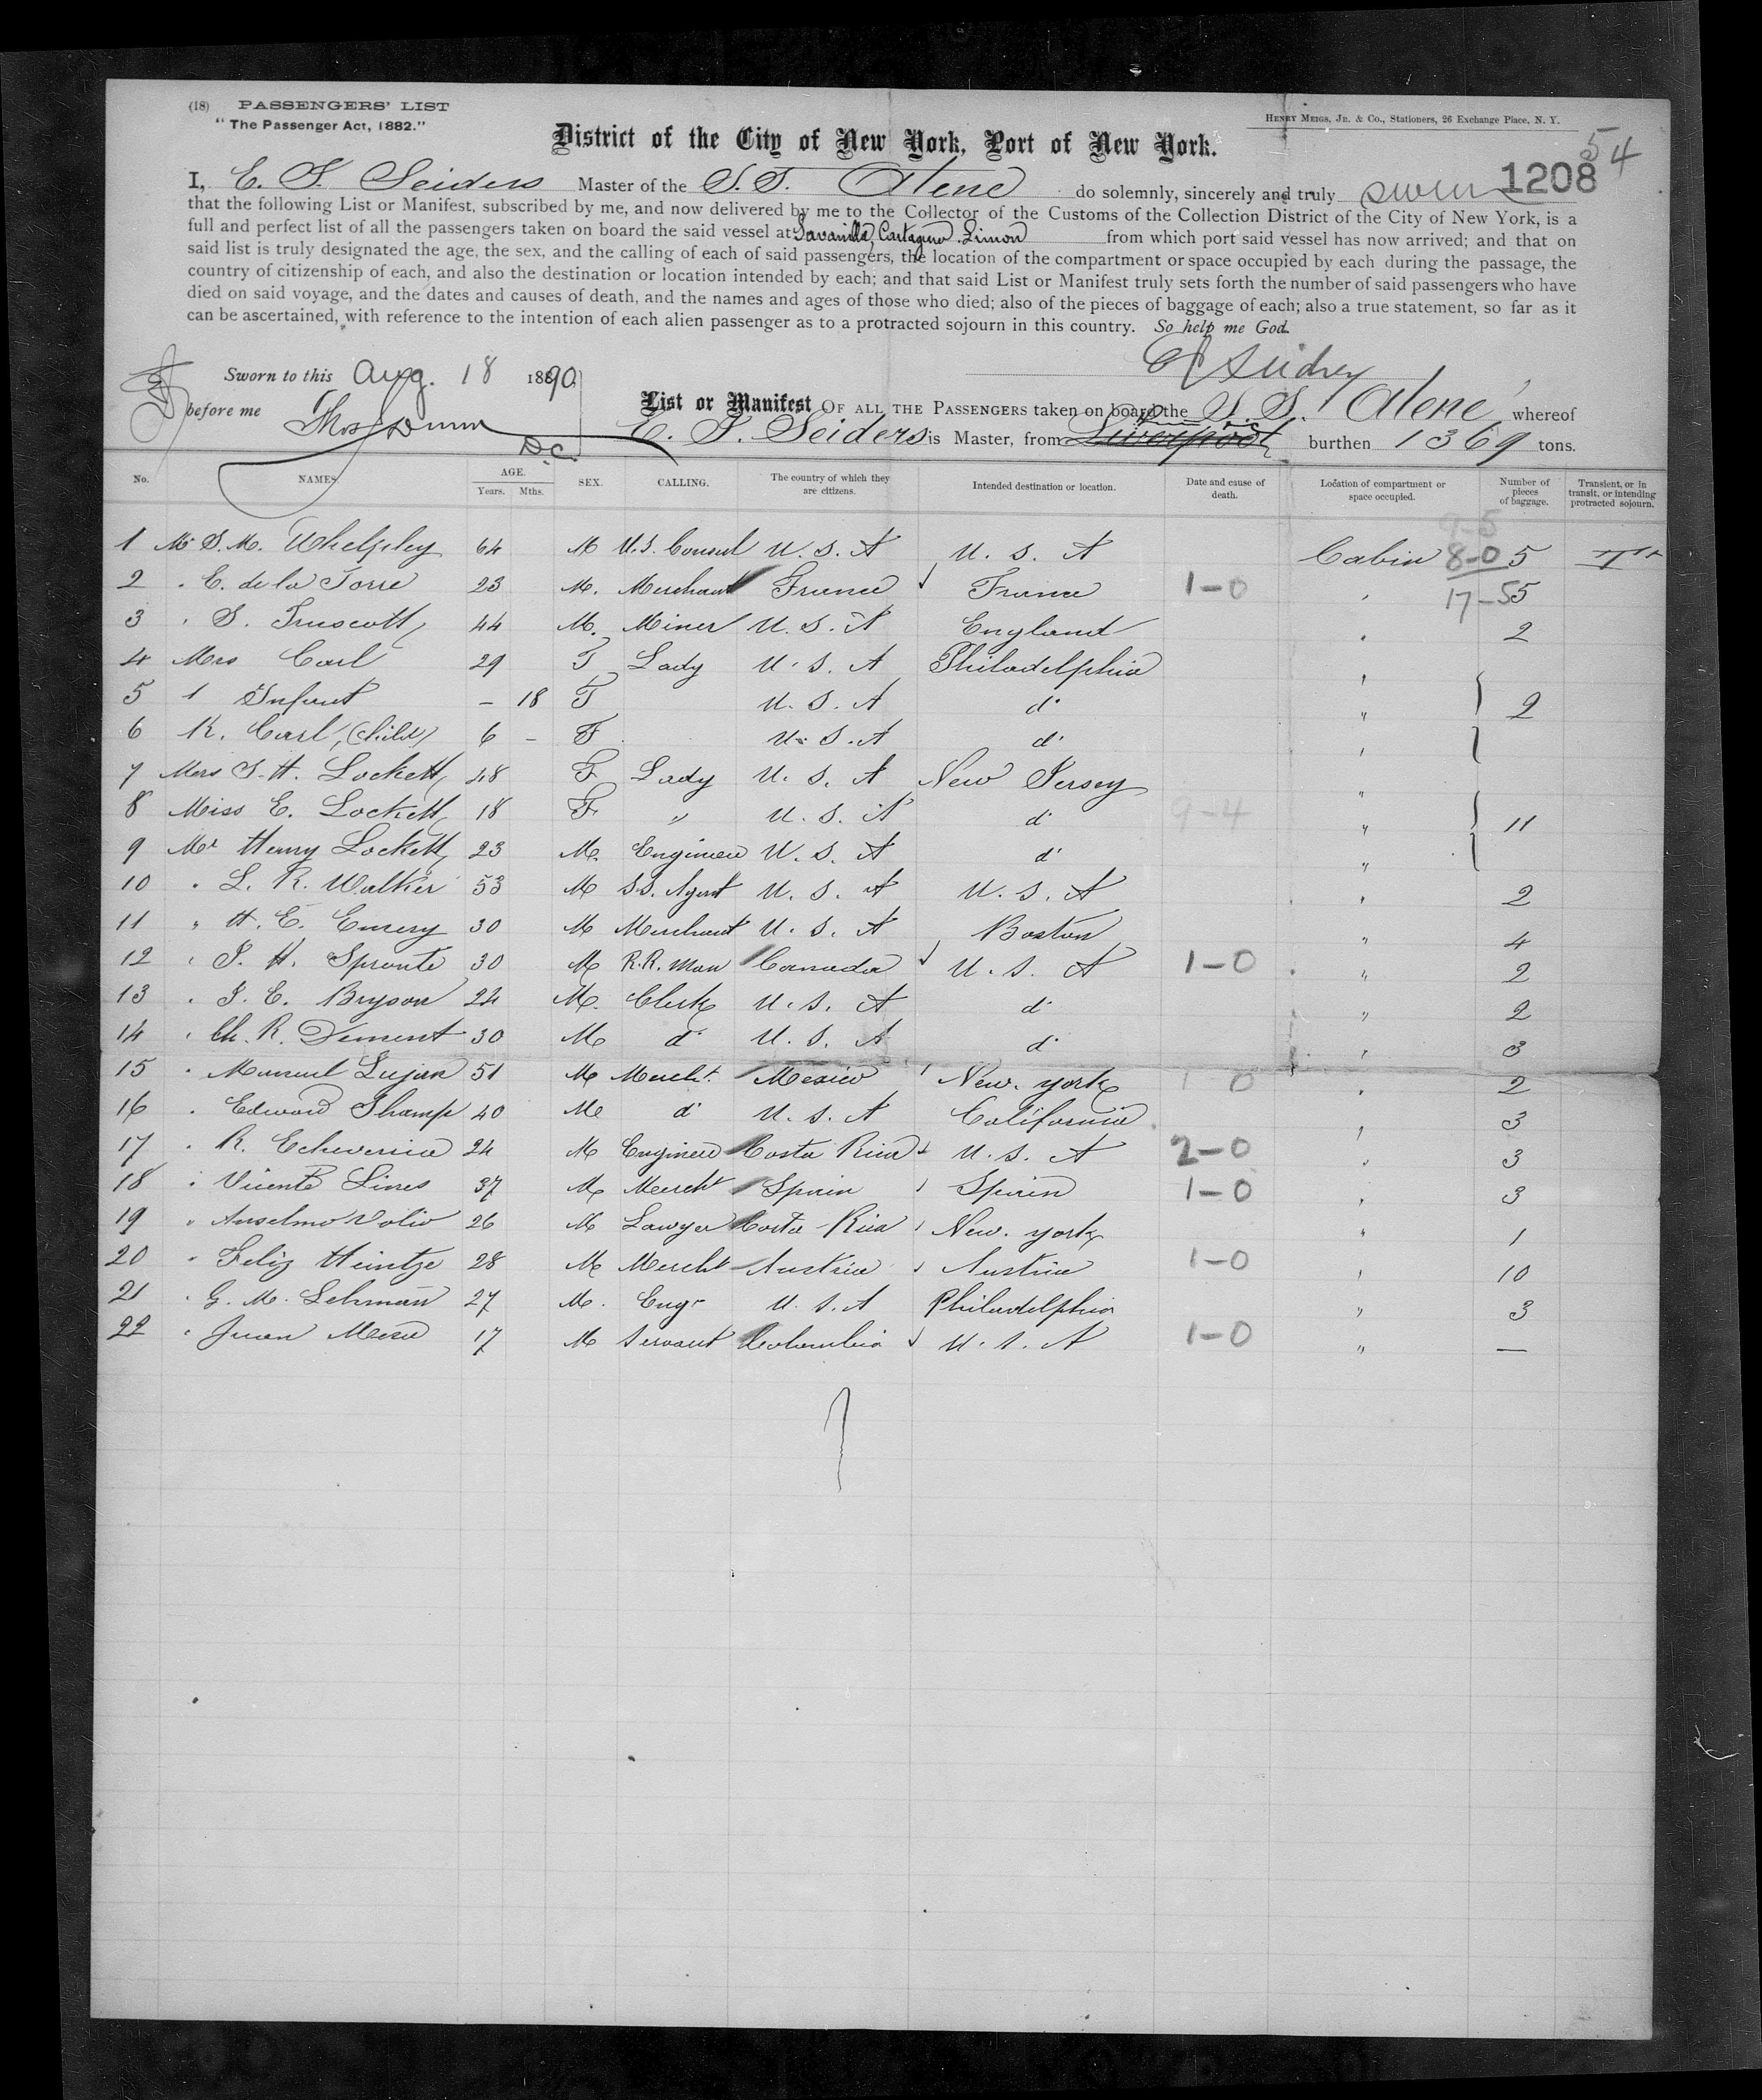 (18) PASSENGERS' LIST
"The Passenger Act, 1882."
HENRY MEIGS, JR. & CO., Stationers, 26 Exchange Place, N. Y.
54
District of the City of New York, Port of New York.
1208
I, E. F. Seiders Master of the S.S. Alene do solemnly, sincerely and truly swear
that the following List or Manifest, subscribed by me, and now delivered by me to the Collector of the Customs of the Collection District of the City of New York, is a
full and perfect list of all the passengers taken on board the said vessel at Savanilla, Cartagena, Limon from which port said vessel has now arrived; and that on
said list is truly designated the age, the sex, and the calling of each of said passengers, the location of the compartment or space occupied by each during the passage, the
country of citizenship of each, and also the destination or location intended by each; and that said List or Manifest truly sets forth the number of said passengers who have
died on said voyage, and the dates and causes of death, and the names and ages of those who died; also of the pieces of baggage of each; also a true statement, so far as it
can be ascertained, with reference to the intention of each alien passenger as to a protracted sojourn in this country. So help me God.
Sworn to this Aug. 18 1890
before me Thos Dunn
D.C.
List or Manifest OF ALL THE PASSENGERS taken on board the S.S. Alene whereof
E. F. Seiders is Master, from Liverpool burthen 1369 tons.
No. NAMES. AGE. Years. Mths. SEX. CALLING. The country of which they are citizens. Intended destination or location. Date and cause of death. Location of compartment or space occupied. Number of pieces of baggage. Transient, or in transit, or intending protracted sojourn.
9-5
1 Mr S. M. Whelpley 64 M U.S. Consul U.S.A U.S.A Cabin 8-0 5
2 " E. de la Torre 23 M. Merchant France France 1-0 " 17-5 5
3 " S. Truscott 44 M. Miner U.S.A England " 2
4 Mrs Carl 29 F Lady U.S.A Philadelphia "
5 1 Infant - 18 F U.S.A do " 2
6 K. Carl, (child) 6 - F U.S.A do "
7 Mrs S. H. Lockett 48 F Lady U.S.A New Jersey "
8 Miss E. Lockett 18 F " U.S.A do 9-4 " 11
9 Mr Henry Lockett 23 M. Engineer U.S.A do "
10 " L. R. Walker 53 M S.S. Agent U.S.A U.S.A " 2
11 " H. E. Emery 30 M Merchant U.S.A Boston " 4
12 " J. H. Sproute 30 M R.R. Man Canada U.S.A 1-0 " 2
13 " J. E. Bryson 24 M. Clerk U.S.A do " 2
14 " Ch. R. Dement 30 M do U.S.A do " 3
15 " Manuel Lujan 51 M Mercht. Mexico New York 1 0 " 2
16 " Edward Thamp 40 M do U.S.A California " 3
17 " R. Echeverria 24 M Engineer Costa Rica U.S.A 2-0 " 3
18 " Vicente Lines 37 M Mercht Spain Spain 1-0 " 3
19 " Anselmo Volio 26 M Lawyer Costa Rica New York " 1
20 " Feliz Heintze 28 M Mercht Austria Austria 1-0 " 10
21 " G. M. Lehman 27 M. Engr U.S.A Philadelphia " 3
22 " Juan Mesa 17 M Servant Colombia U.S.A 1-0 " —